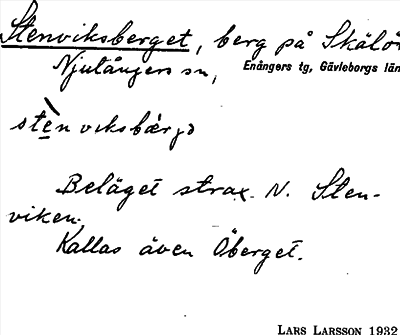 Stenviksberget, berg på Skälör
Njutångers sn, Enångers tg, Gävleborgs län
Beläget strax N. Sten-
viken.
Kallas även Öberget.
LARS LARSSON 1932